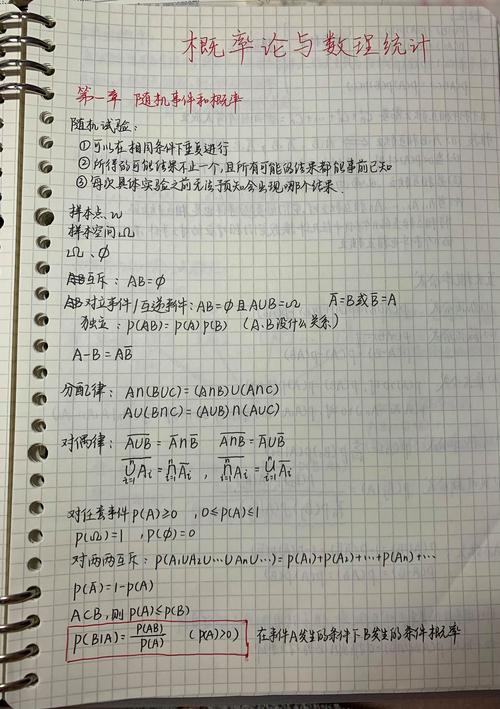 概率论与数理统计
第一章 随机事件和概率
随机试验:
①可以在相同条件下重复进行
②所得的可能结果不止一个,且所有可能的结果都能事前已知
③每次具体实验之前无法预知会出现哪个结果.
样本点:ω
样本空间:Ω
Ω、φ
AB互斥:AB=φ
AB对立事件/互逆事件:AB=φ且AUB=Ω Ā=B或B̄=A
独立:P(AB)=P(A)P(B) (A.B没什么关系)
A-B=AB̄
分配律: A∩(BUC)=(A∩B)U(A∩C)
AU(B∩C)=(AUB)∩(AUC)
对偶律: \overline{AUB}=Ā∩B̄ \overline{A∩B}=ĀUB̄
\overline{\bigcup_{i=1}^{n}A_i}=\bigcap_{i=1}^{n}\overline{A_i} , \overline{\bigcap_{i=1}^{n}A_i}=\bigcup_{i=1}^{n}\overline{A_i}
对任意事件P(A)≥0 ,0≤P(A)≤1
P(Ω)=1 ,P(φ)=0
对两两互斥:P(A₁UA₂U…UAnU…)=P(A₁)+P(A₂)+…+P(An)+…
P(Ā)=1-P(A)
A⊂B,则P(A)≤P(B)
P(B|A)=P(AB)/P(A) (P(A)>0) 在事件A发生的条件下B发生的条件概率